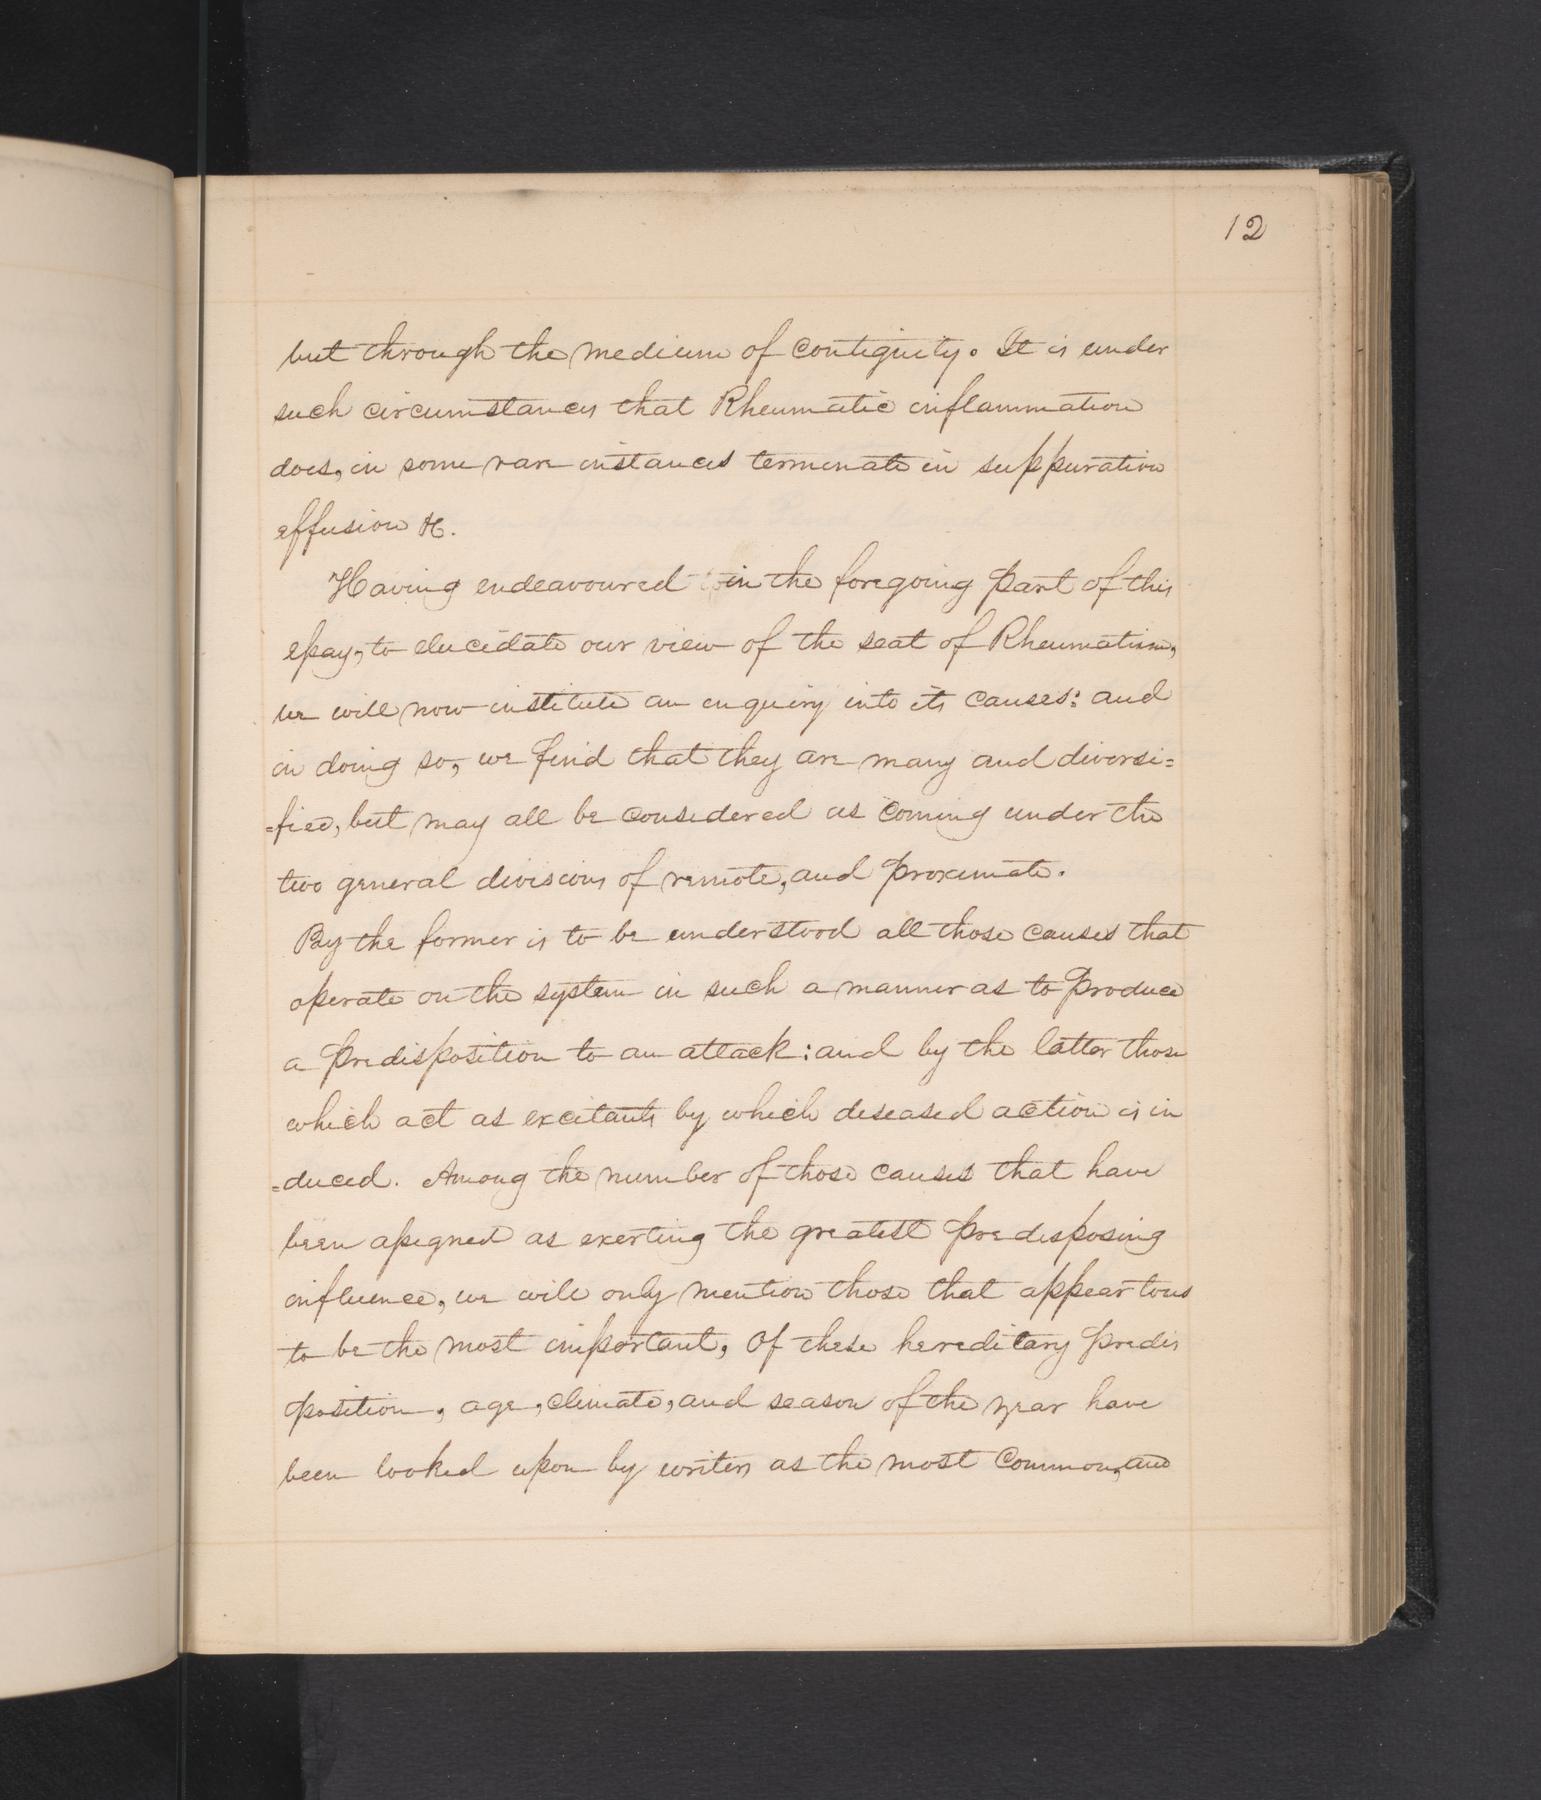 12
but through the medium of contiguity. It is under
such circumstances that Rheumatic inflammation
does, in some rare instances terminate in suppuration
effusion &c.
Having endeavoured in the foregoing part of this
essay, to elucidate our view of the seat of Rheumatism,
we will now institute an enquiry into its causes: and
in doing so, we find that they are many and diversi=
=fied, but may all be considered as coming under the
two general divisions of remote, and proximate.
By the former is to be understood all those causes that
operate on the system in such a manner as to produce
a predisposition to an attack: and by the latter those
which act as excitants by which diseased action is in
=duced. Among the number of those causes that have
been assigned as exerting the greatest predisposing
influence, we will only mention those that appear to us
to be the most important, Of these hereditary predis
position, age, climate, and season of the year have
been looked upon by writers as the most common, and